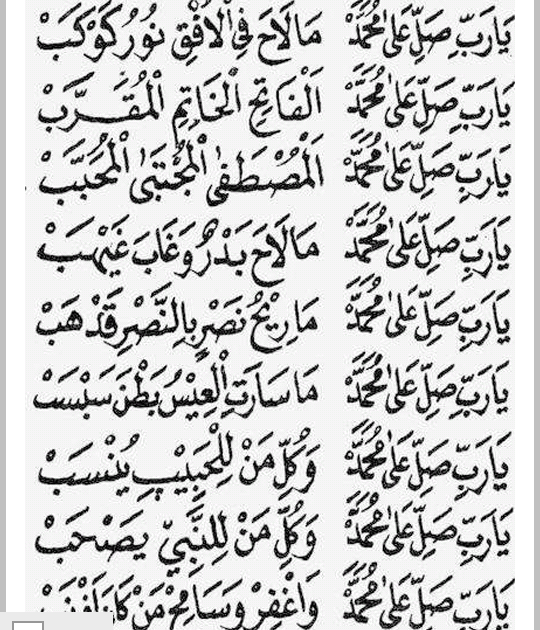 يَارَبِّ صَلِّ عَلٰى مُحَمَّدْ مَالَاحَ فِي الْأُفْقِ نُوْرُ كَوْكَبْ
يَارَبِّ صَلِّ عَلٰى مُحَمَّدْ اَلْفَاتِحِ الْخَاتِمِ الْمُقَرَّبْ
يَارَبِّ صَلِّ عَلٰى مُحَمَّدْ اَلْمُصْطَفٰى الْمُجْتَبٰى الْمُحَبَّبْ
يَارَبِّ صَلِّ عَلٰى مُحَمَّدْ مَالَاحَ بَدْرٌ وَغَابَ غَيْهَبْ
يَارَبِّ صَلِّ عَلٰى مُحَمَّدْ مَارِيْحُ نَصْرٍ بِالنَّصْرِ قَدْ هَبْ
يَارَبِّ صَلِّ عَلٰى مُحَمَّدْ مَاسَارَتِ الْعِيْسُ بَطْنَ سَبْسَبْ
يَارَبِّ صَلِّ عَلٰى مُحَمَّدْ وَكُلِّ مَنْ لِلْحَبِيْبِ يُنْسَبْ
يَارَبِّ صَلِّ عَلٰى مُحَمَّدْ وَكُلِّ مَنْ لِلنَّبِيِّ يَصْحَبْ
يَارَبِّ صَلِّ عَلٰى مُحَمَّدْ وَاغْفِرْ وَسَامِحْ مَنْ كَانَ أَذْنَبْ